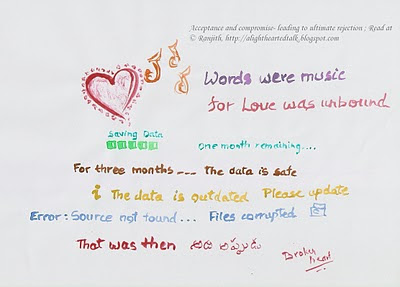 Acceptance and compromise- leading to ultimate rejection ; Read at
© Ranjith, http://alightheartedtalk.blogspot.com
Words were music
for Love was unbound
Saving Data
One month remaining....
For three months --- The data is safe
i The data is outdated Please update
Error: Source not found... Files corrupted
That was then అది అప్పుడు
Broken
heart